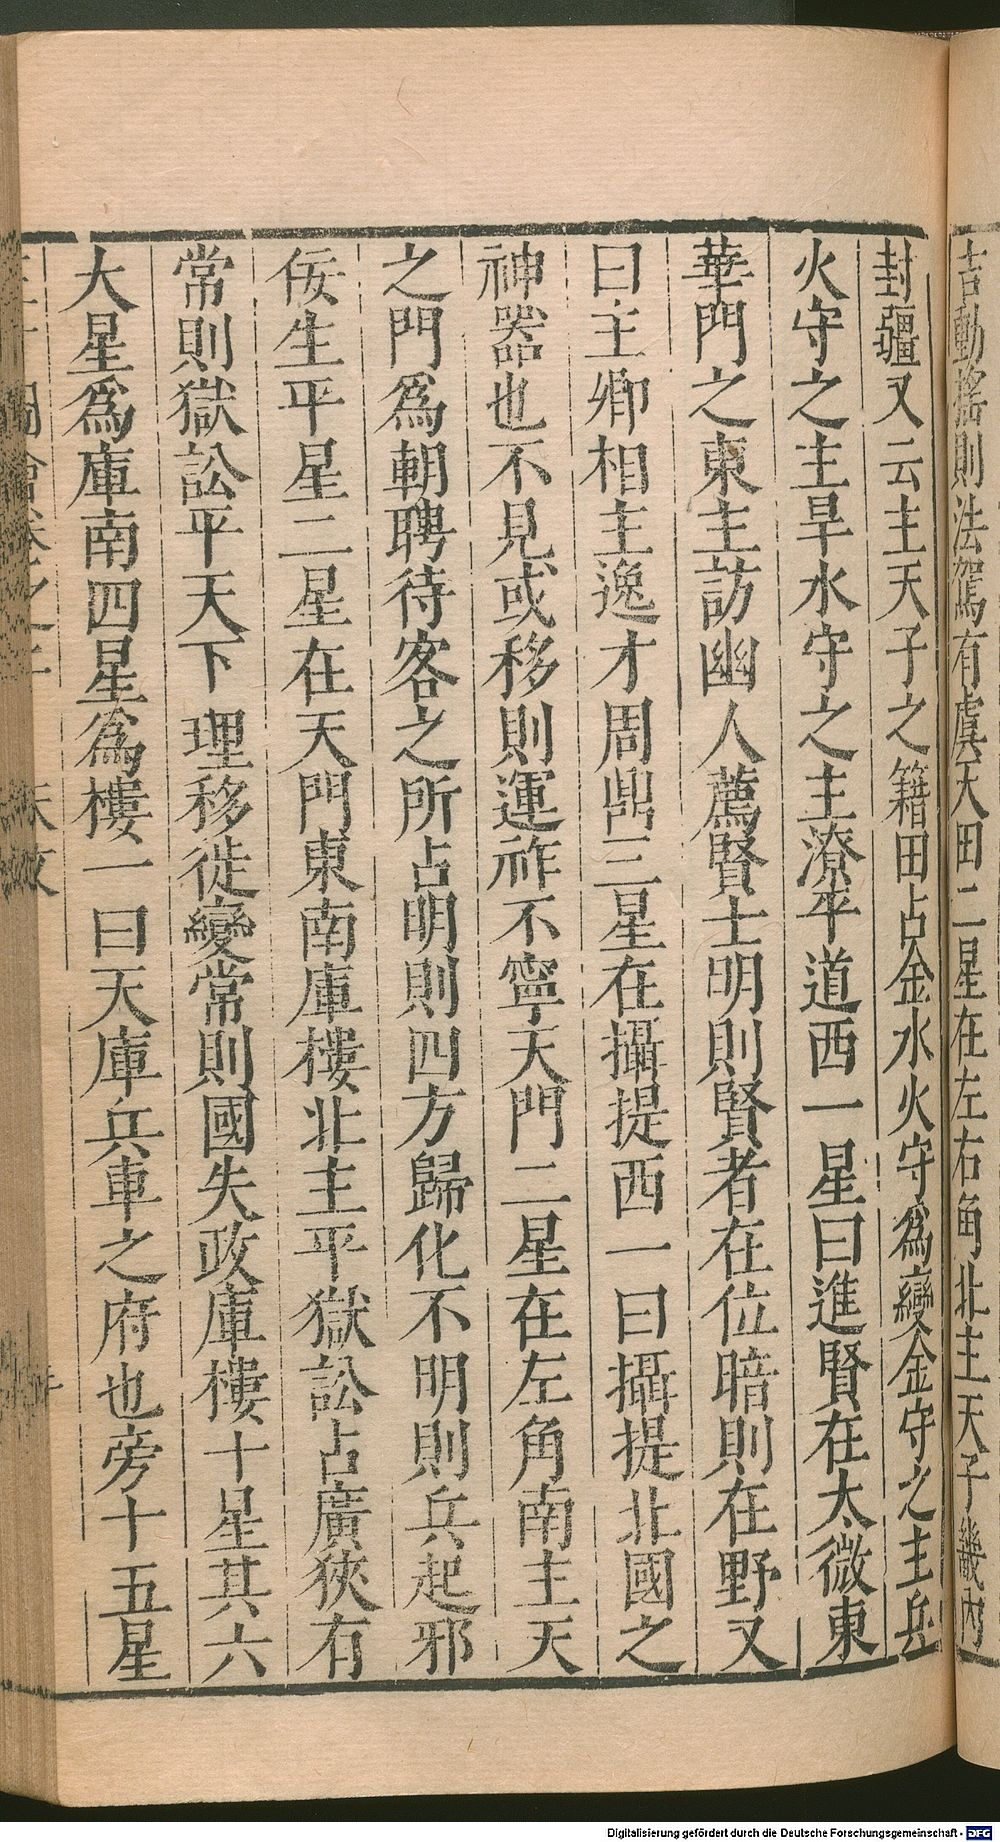 吉動搖則法駕有虞天田二星在左右角北主天子畿內
封疆又云主天子之籍田占金水火守為變金守之主兵
火守之主旱水守之主潦平道西一星曰進賢在太微東
華門之東主訪幽人薦賢士明則賢者在位暗則在野又
曰主卿相主逸才周鼎三星在攝提西一曰攝提北國之
神器也不見或移則運祚不寧天門二星在左角南主天
之門爲朝聘待客之所占明則四方歸化不明則兵起邪
佞生平星二星在天門東南庫樓北主平獄訟占廣狹有
常則獄訟平天下理移徙變常則國失政庫樓十星其六
大星爲庫南四星爲樓一曰天庫兵車之府也旁十五星
Digitalisierung gefördert durch die Deutsche Forschungsgemeinschaft - DFG